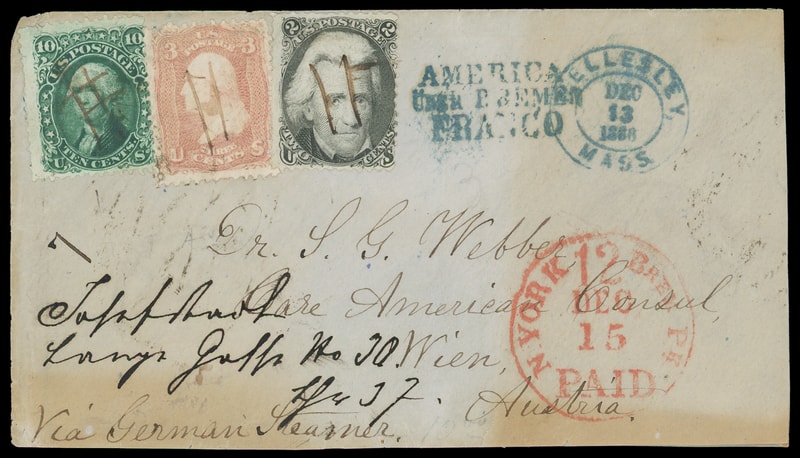 10 10
U.S. POSTAGE
TEN CENTS
U S
3 3
U.S. POSTAGE
THREE CENTS
U S
2 2
U.S. POSTAGE
TWO CENTS
U S
AMERICA
ÜBER BREMEN
FRANCO
WELLESLEY,
DEC
13
1866
MASS.
7
Dr. S. G. Webber,
Care American Consul,
Josefstadt
Lange Gasse No 38.
Wien,
37.
Austria.
Via German Steamer.
N. YORK 12 BREM. PKT
DEC
15
PAID